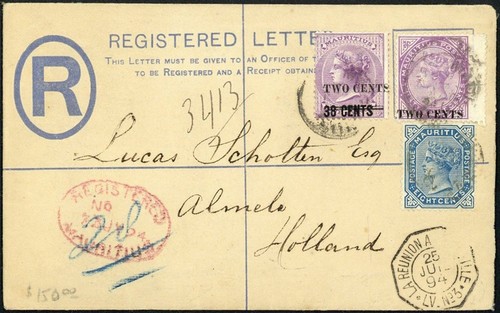 REGISTERED LETTER
THIS LETTER MUST BE GIVEN TO AN OFFICER OF
TO BE REGISTERED AND A RECEIPT OBTAIN
R
MAURITIUS
TWO CENTS
38 CENTS
MAURITIUS
TWO CENTS
3413
POSTAGE MAURITIUS POSTAGE
EIGHT CEN
Lucas Scholten Esq
Almelo
Holland
REGISTERED
No
94
MAURITIUS
LA REUNION A
25
JUIL
94
LV. No3
$150.00